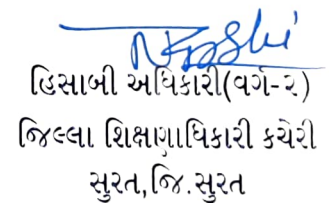 હિસાબી અધિકારી(વર્ગ-૨)
જિલ્લા શિક્ષણાધિકારી કચેરી
સુરત,જિ.સુરત